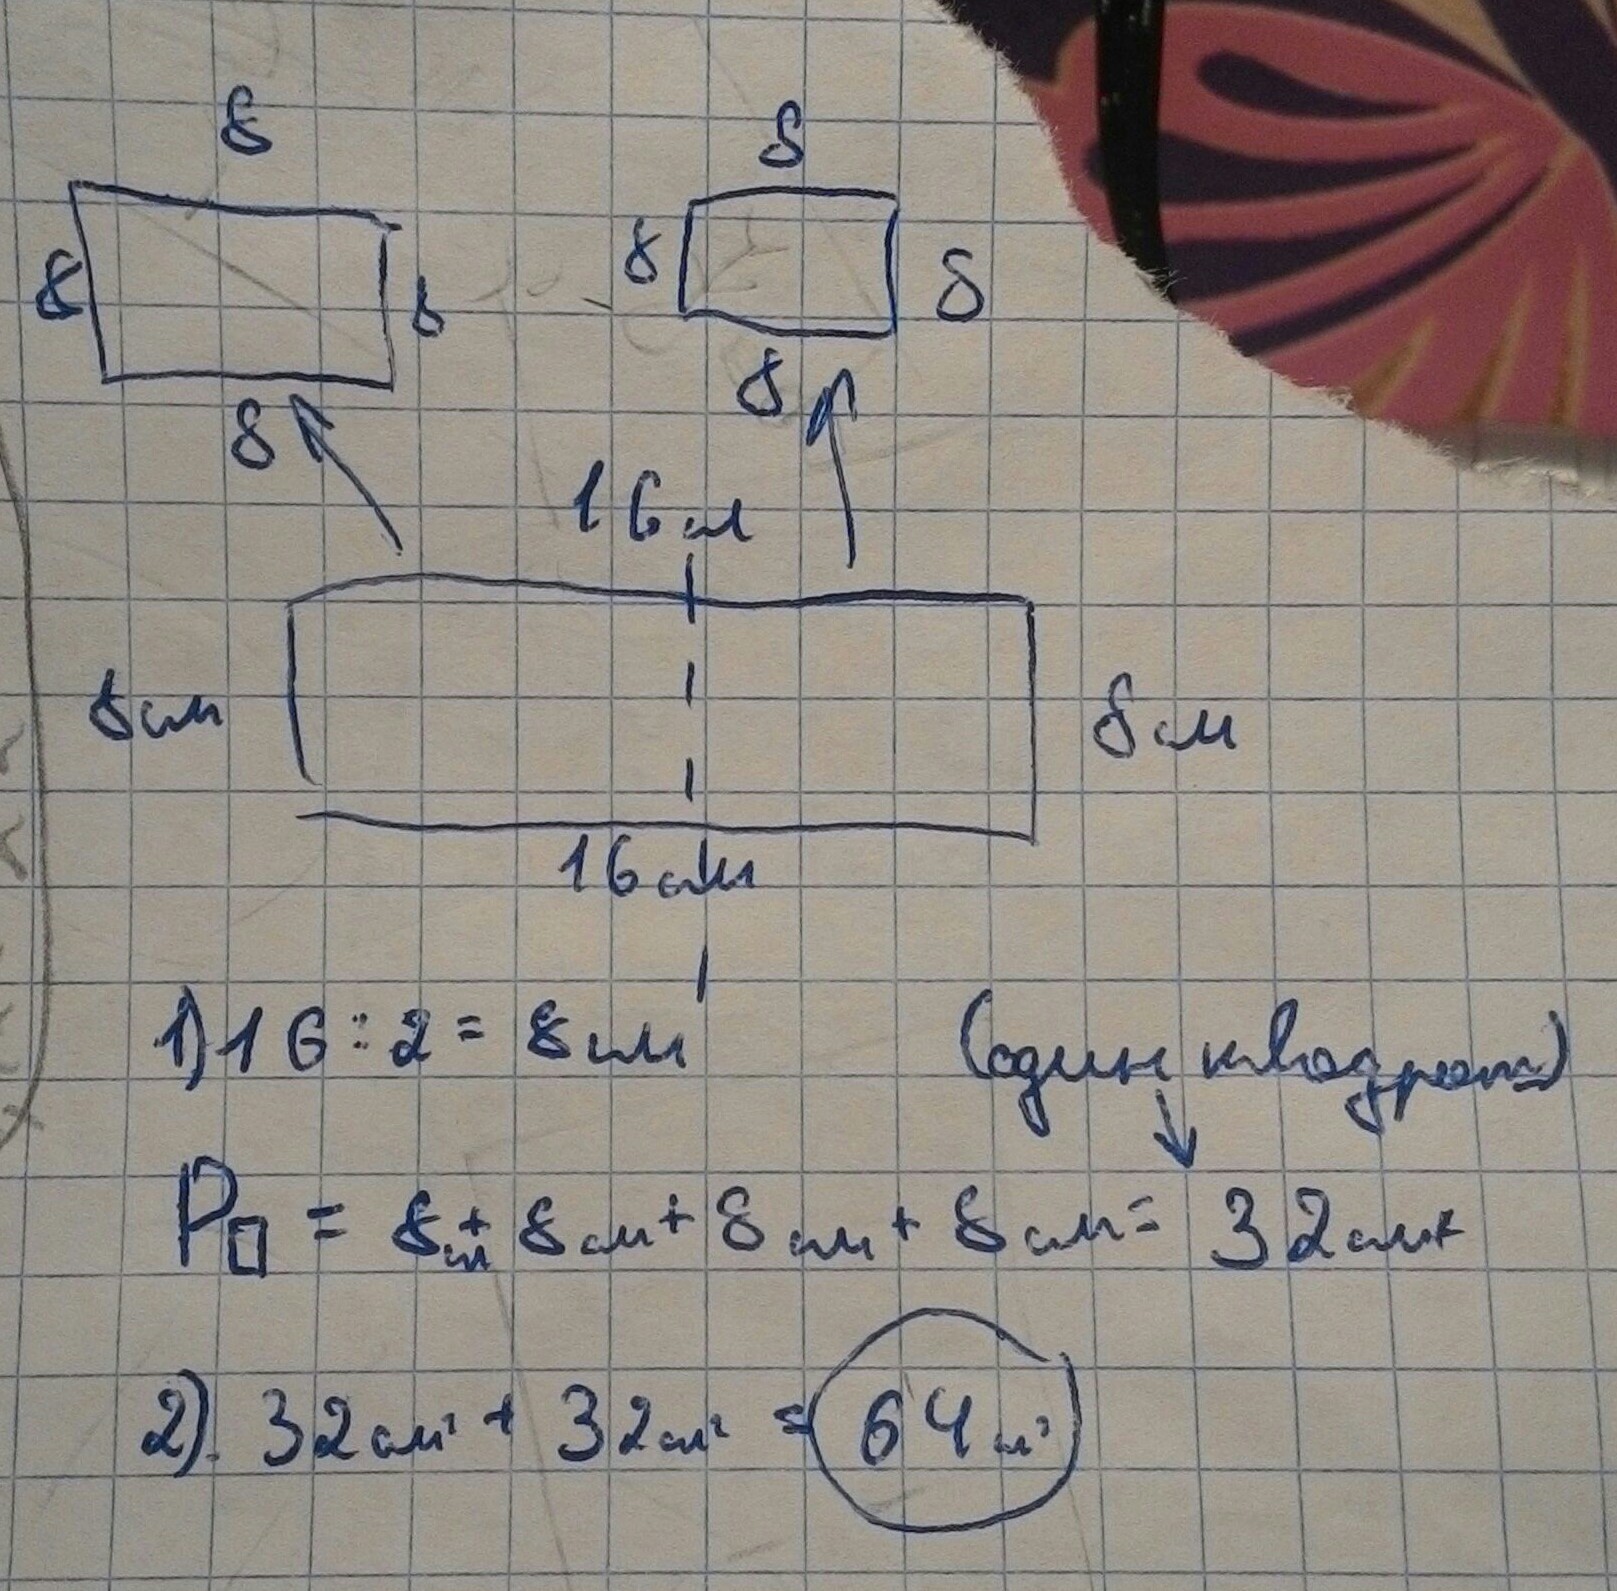 8 8
8 8 8 8
8 8
16 см
8 см 8 см
16 см
1) 16 : 2 = 8 см (один квадрат)
P□ = 8 см + 8 см + 8 см + 8 см = 32 см
2). 32 см² + 32 см² = 64 м²